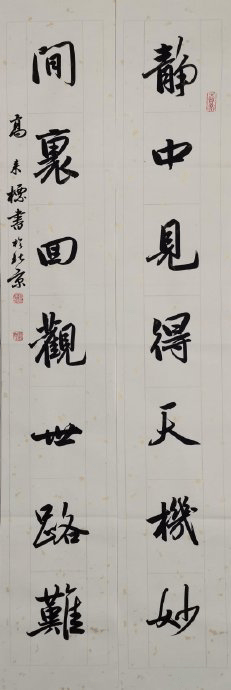 静中見得天機妙
間裏回觀世路難
高東標書於北京